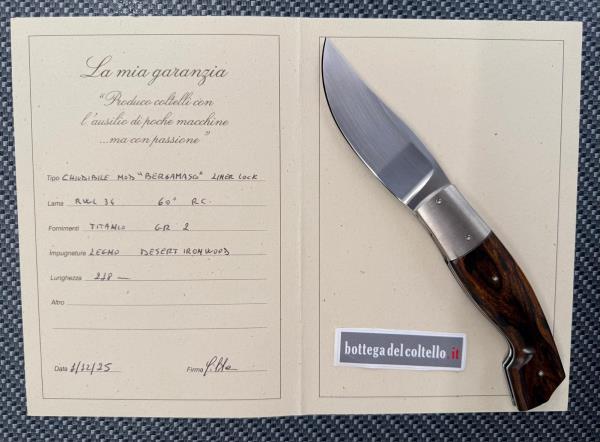 La mia garanzia
"Produco coltelli con
l'ausilio di poche macchine
...ma con passione"
Tipo CHIUDIBILE MOD "BERGAMASCO" LINER LOCK
Lama RWL 34 60° RC.
Fornimenti TITANIO GR 2
Impugnature LEGNO DESERT IRONWOOD
Lunghezza 218
Altro
Data 1/12/25 Firma
bottega del coltello.it